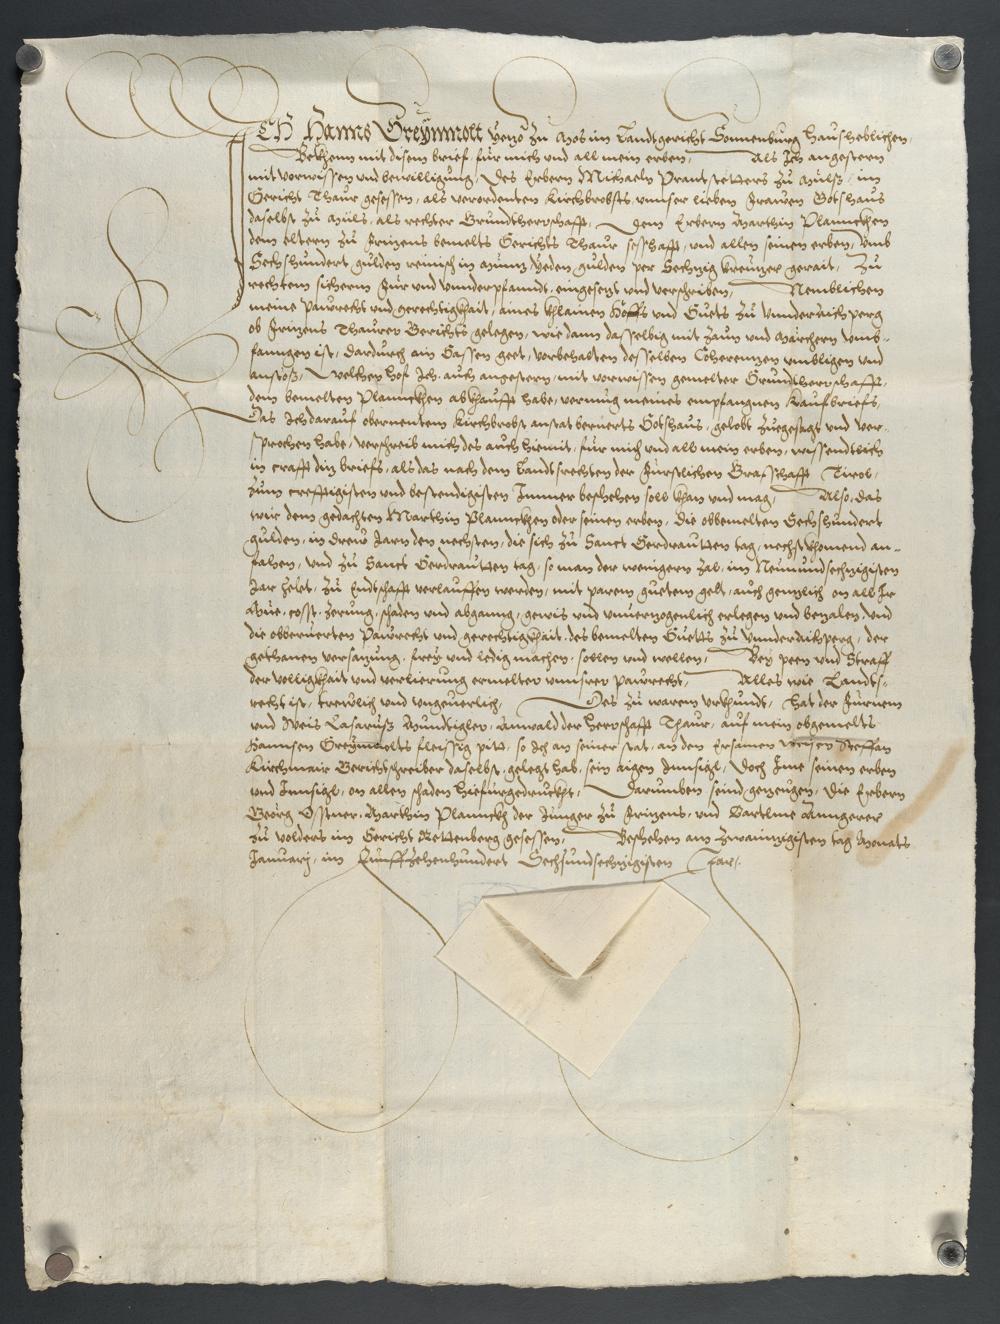 ICH Hanns Greÿmnolt yetzo zu Mos im Landtgericht Sonnenburg Hausheblichen,
Bekhenn mit disem brief für mich vnd all mein erben, Als Ich angestern
mit vorwissen vnd bewilligung, des Erbern Michaeln Prantstetters zu Milss im
Gericht Thaur gesessen, als verordenten Kirchbrobsts, vnnser lieben Frauen Gotshaus
daselbst zu Mils, als rechter Grundtherrschafft, dem Erbern Marthin Planncken
dem eltern zu Frizens bemelts Gerichts Thaur sesshafft, vnd allen seinen erben, Vmb
Sechshundert gulden reinisch in münz, yeden gulden per Sechzig kreuzer gerait, Zu
rechtem sichern Fur vnd vnnderpfanndt, eingesezt vnd verschriben, Nemblichen
meine Paurecht vnd gerechtigkhait, aines khlainen Höffls vnd Guets zu Vnnderaichperg
ob Frizens Thaurer Gerichts gelegen, wie dann dasselbig mit zaun vnd Märchern vmb-
fanngen ist, dardurch ain Gassen geet, vorbehalten desselben Coherennzen vmbligen vnd
anstöss, Welchen hof Ich auch angestern, mit vorwissen gemelter Grundtherrschafft,
dem bemelten Planncken abkhaufft habe, vermüg meines empfangnen Kaufbriefs,
Das Ich darauf obernentem Kirchbrobst anstat berierts Gotshaus, gelobt zuegesagt vnd ver-
sprochen habe, verschreib mich des auch hiemit, für mich vnd all mein erben, wissendtlich
in crafft diz briefs, als das nach dem Landtsrechten der Fürstlichen Grafschafft Tirol,
zum crefftigisten vnd bestendigisten Immer beshehen soll khan vnd mag, Also, das
wir dem gedachten Marthin Planncken oder seinen erben, die obbemelten Sechshundert
gulden, in dreien Jarn den nechsten, die sich zu Sanct Gerdrautten tag, nechstkhomend an-
fahen, vnd zu Sanct Gerdrautten tag, so man der wenigern zal, im Neunundsechzigisten
Jar zelt, zu Endtschafft verlauffen werden, mit parem guetem gelt, auch genzlich on all Ir
Müe, cosst, zerung, schaden vnd abganng, gewis vnd vnuerzogenlich erlegen vnd bezalen, vnd
die obberierten Paurecht vnd gerechtigkhait, des bemelten Guetts zu Vnnderaichperg, der
gethanen versazung, frey vnd ledig machen, sollen vnd wellen, Bey peen vnd Straff
der völligkhait vnd verlierung ermelter vnnsrer paurecht, Alles wie Landts-
recht ist, treulich vnd vngeuerlich, Des zu warem vrkhundt, Hat der Fürnem
vnd Weis Lasaruss Mundtigler, Anwald der Herrschafft Thaur, auf mein obgemelts
Hannsen Greÿmnolts fleissig pitt, so Ich an seiner stat, an den Ersamen weisen Steffan
Kirchmair Gerichtschreiber daselbst, gelegt hab, sein aigen Innsigl, doch Ime seinen erben
vnd Innsigl, on allen schaden hiefürgedruckht, Darumben seind gezeugen, die Erbern
Geörg Össtner, Marthin Planncks der Junger zu Frizens, vnd Bartlme Anngerer
zu Volders im Gericht Rettenberg gesessen, Beshehen am zwainzigisten tag Monats
Januarÿ, im Fünffzehenhundert Sechsundsechzigisten Jar.